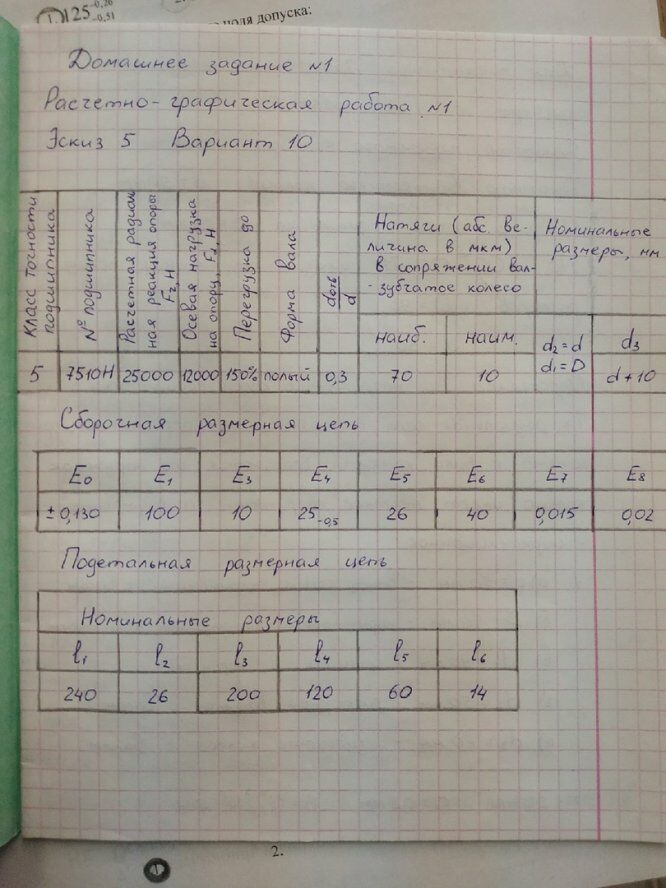 1) 125 -0,26 -0,51
поля допуска:
Домашнее задание №1
Расчетно-графическая работа №1
Эскиз 5 Вариант 10
Класс точности подшипника
№ подшипника
Расчетная радиальная реакция опоры Fr, Н
Осевая нагрузка на опору, Fa, Н
Перегрузка до
Форма вала
dотв/d
Натяги (абс. ве-
личина в мкм)
в сопряжении вал-
-зубчатое колесо
Номинальные
размеры, мм
наиб. наим. d2=d d3
d1=D
5 7510Н 25000 12000 150% полый 0,3 70 10 d+10
Сборочная размерная цепь
E0 E1 E3 E4 E5 E6 E7 E8
±0,130 100 10 25-0,5 26 40 0,015 0,02
Подетальная размерная цепь
Номинальные размеры
l1 l2 l3 l4 l5 l6
240 26 200 120 60 14
2.